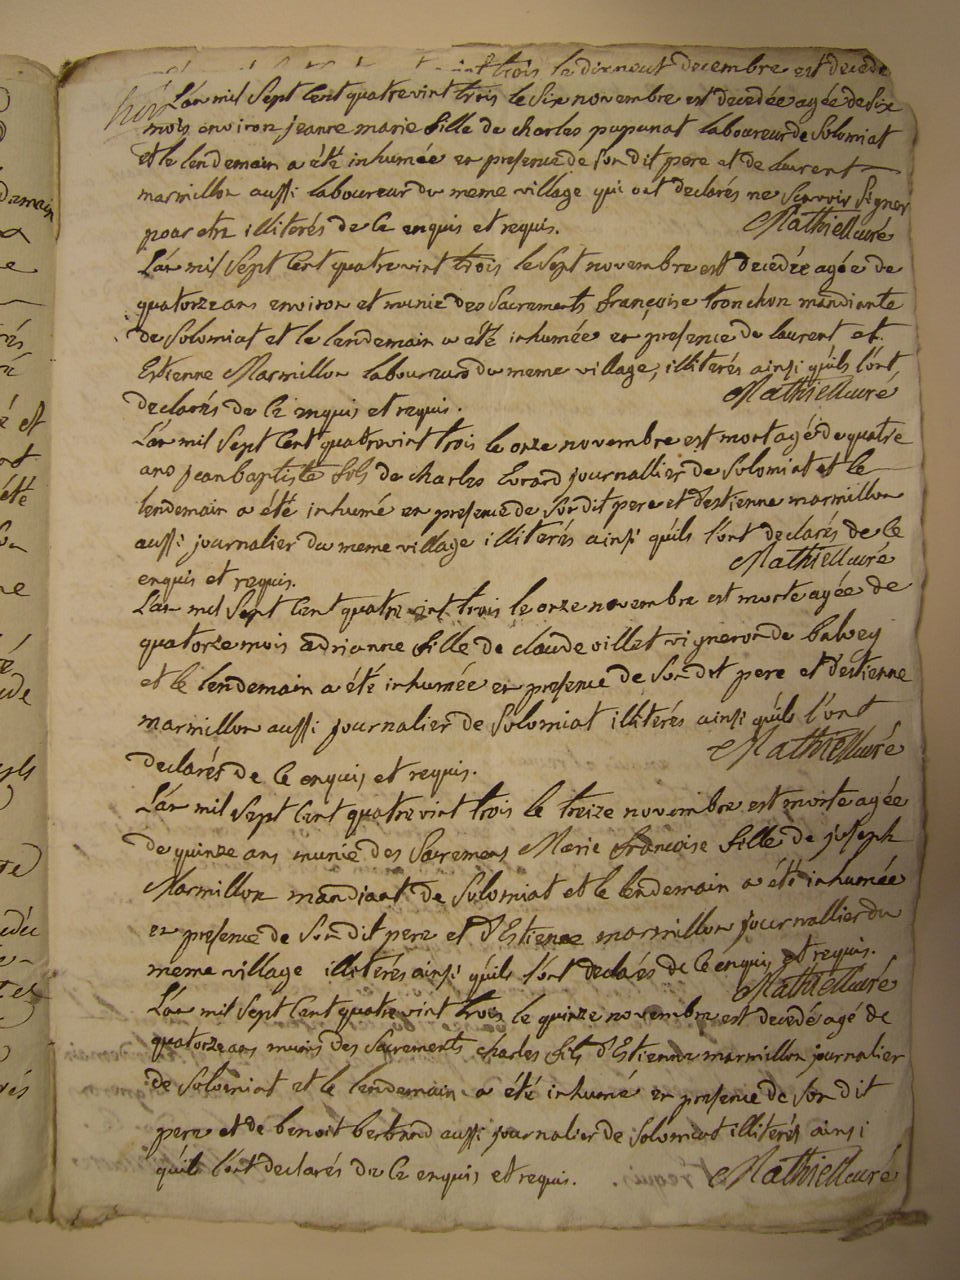 trois le dixneuf decembre est decedé
L'an mil Sept Cent quatrevint trois le Six novembre est decedée agée de Six
mois environ jeanne marie fille de charles pupunat laboureur de Solomiat
et le lendemain a été inhumée en presence de Son dit pere et de laurent
marmillon aussi laboureur du meme village qui ont declarés ne Scavoir Signer
pour etre illiterés de Ce enquis et requis. Mathieu curé
L'an mil Sept Cent quatrevint trois le Sept novembre est decedée agée de
quatorze ans environ et munie des Sacrements françoise tronchon mandiante
de Solomiat et le lendemain a été inhumée en presence de laurent et
Estienne Marmillon laboureurs du meme village, illiterés ainsi qu'ils l'ont
declarés de Ce enquis et requis. Mathieu curé
L'an mil Sept Cent quatrevint trois le onze novembre est mort agé de quatre
ans jean baptiste fils de charles Evrard journallier de Solomiat et le
lendemain a été inhumé en presence de Son dit pere et d'estienne marmillon
aussi journalier du meme village illiterés ainsi qu'ils l'ont declarés de Ce
enquis et requis. Mathieu curé
L'an mil Sept Cent quatre vint trois le onze novembre est morte agée de
quatorze mois adrianne fille de claude villet vigneron de balvey
et le lendemain a été inhumée en presence de Son dit pere et d'estienne
marmillon aussi journalier de Solomiat illiterés ainsi qu'ils l'ont
declarés de Ce enquis et requis. Mathieu curé
L'an mil Sept Cent quatrevint trois le treize novembre est morte agée
de quinze ans munie des Sacremens Marie françoise fille de joseph
Marmillon mandiant de Solomiat et le lendemain a été inhumée
en presence de Son dit pere et d'Estienne marmillon journallier du
meme village illiterés ainsi qu'ils l'ont declarés de Ce enquis et requis.
Mathieu curé
L'an mil Sept Cent quatrevint trois le quinze novembre est decedé agé de
quatorze ans munis des Sacrements charles fils d'Estienne marmillon journalier
de Solomiat et le lendemain a été inhumé en presence de Son dit
pere et de benoit bertrand aussi journalier de Solomiat illiterés ainsi
qu'ils l'ont declarés de Ce enquis et requis. Mathieu curé